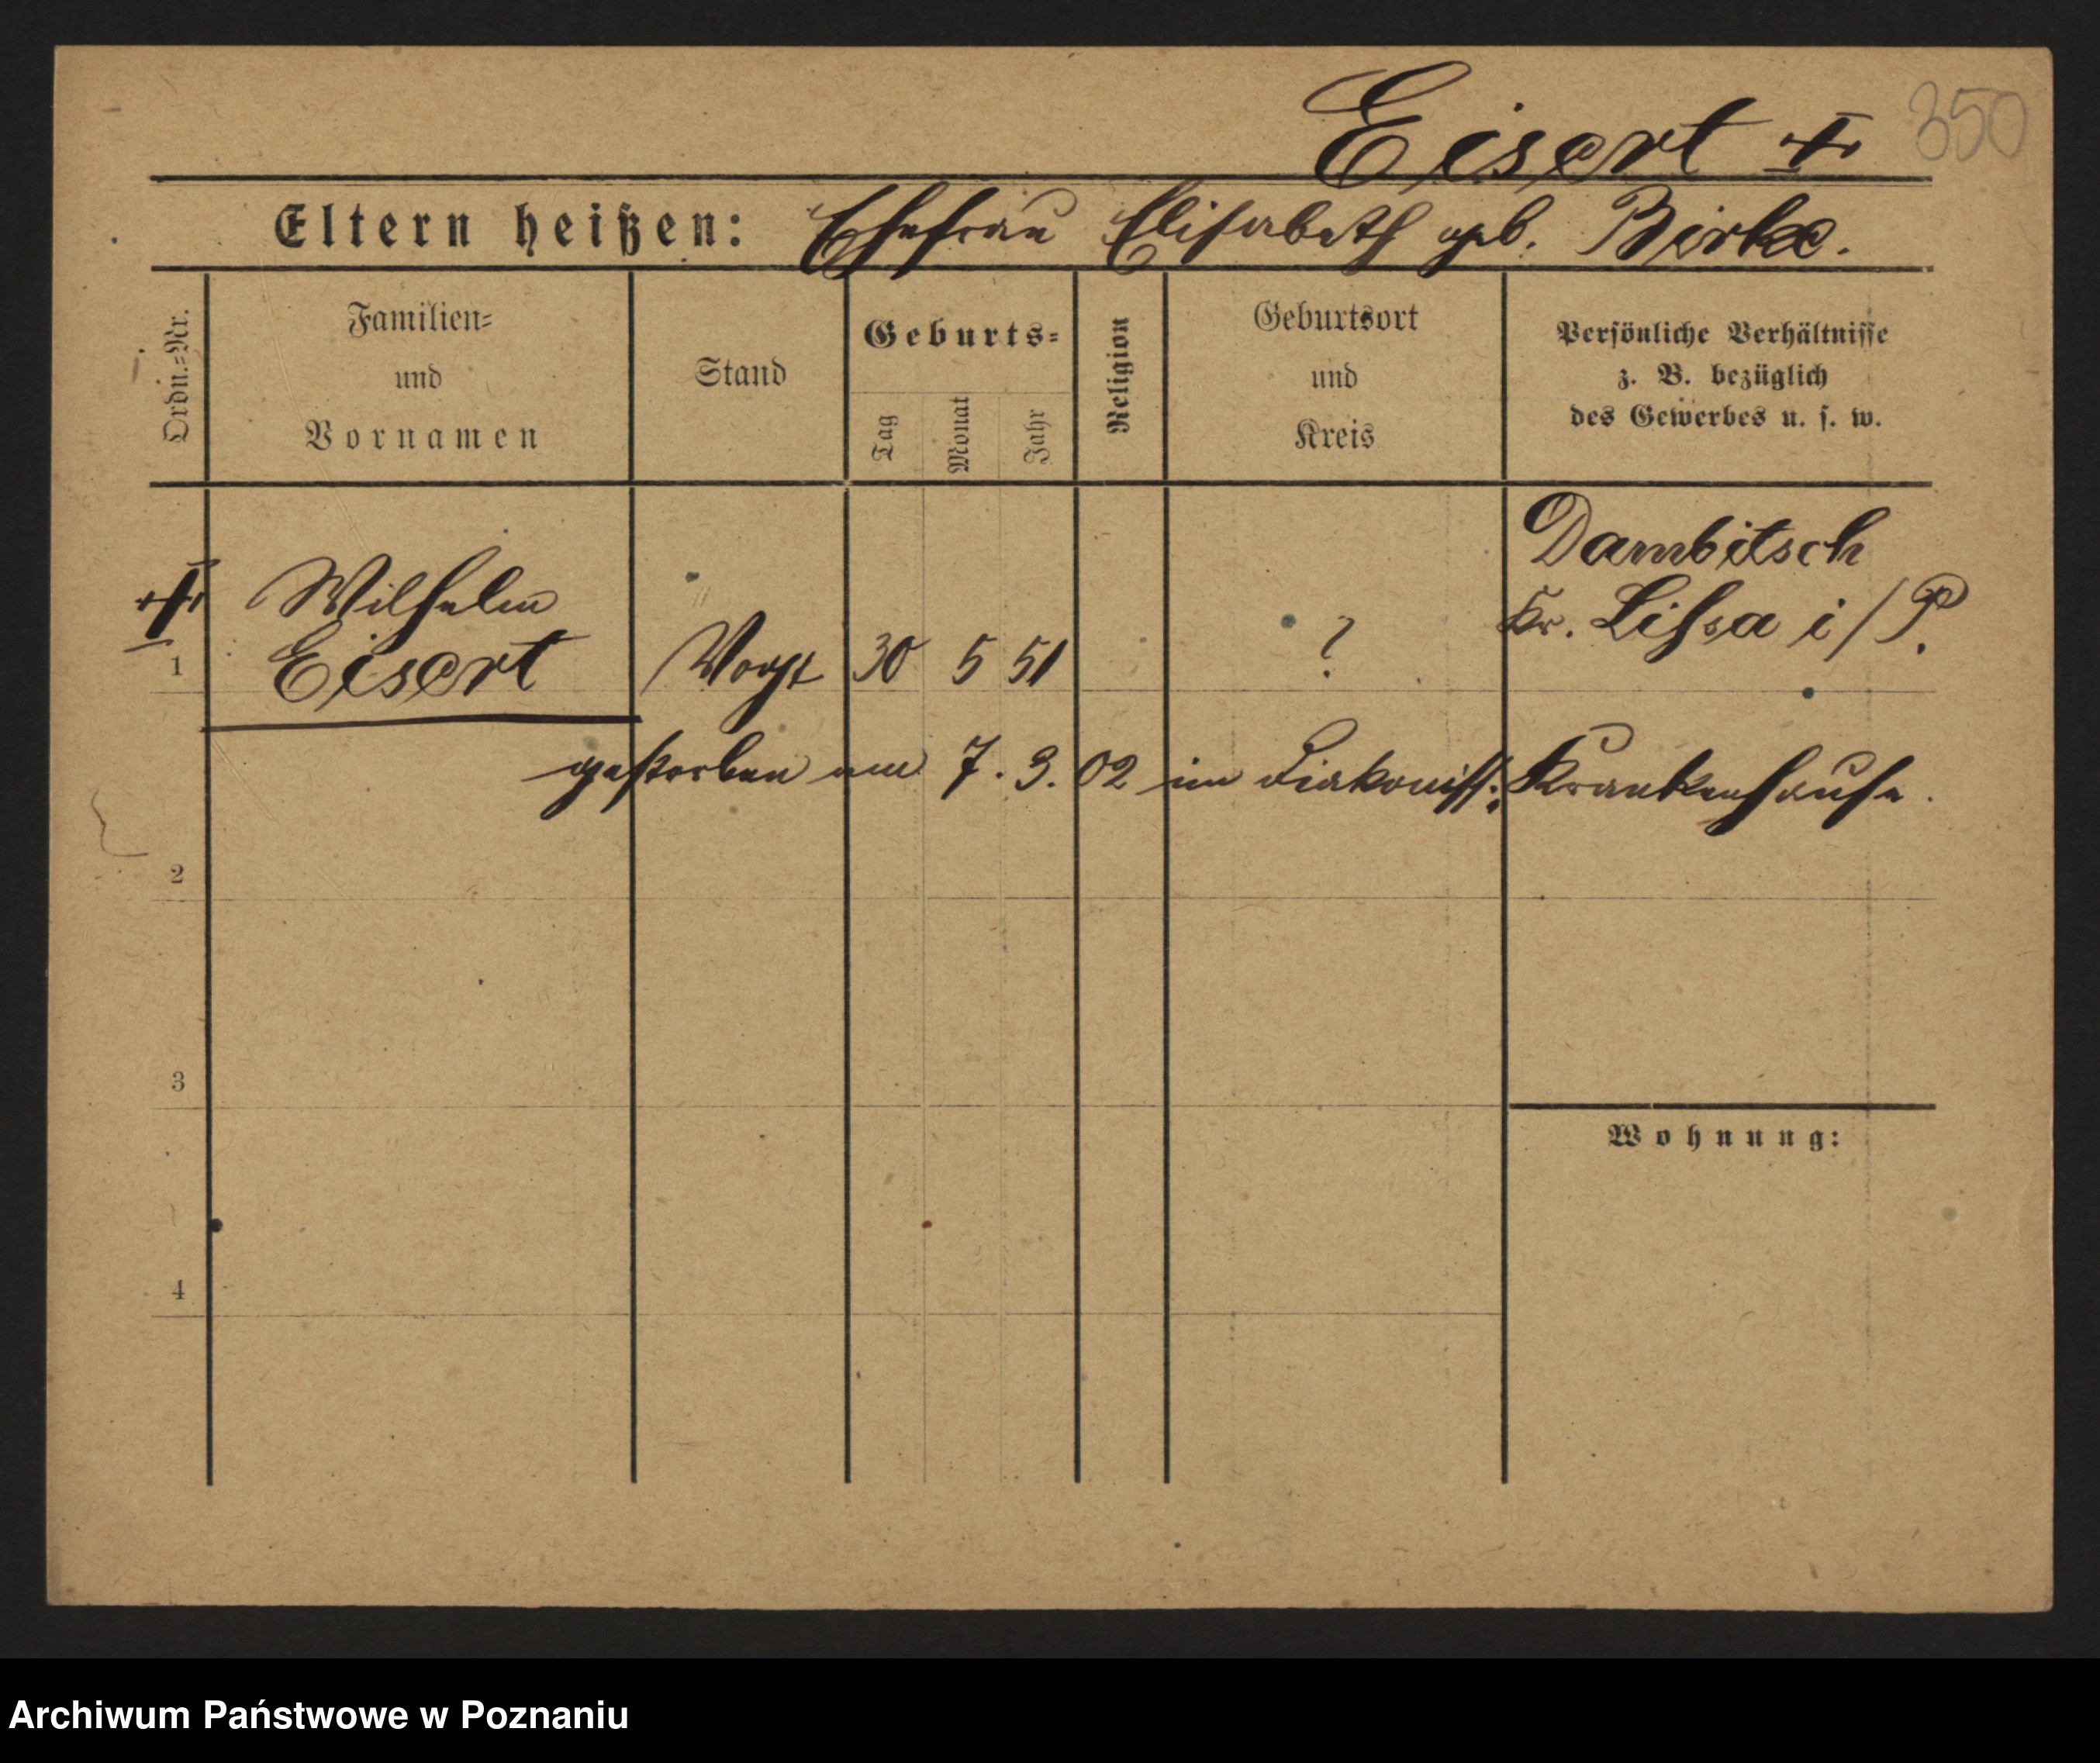 350
Eisert †
Eltern heißen: Ehefrau Elisabeth geb. Birke.
Ordn.-Nr.
Familien-
und
Vornamen
Stand
Geburts-
Tag
Monat
Jahr
Religion
Geburtsort
und
Kreis
Persönliche Verhältnisse
z. B. bezüglich
des Gewerbes u. s. w.
Dambitsch
Kr. Lissa i/P.
† Wilhelm
1 Eisert Vogt 30 5 51 ?
gestorben am 7. 3. 02 im Diakoniss: Krankenhause.
2
3
Wohnung:
4
Archiwum Państwowe w Poznaniu